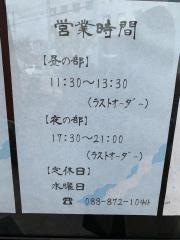 営業時間
【昼の部】
11:30～13:30
(ラストオーダー)
【夜の部】
17:30～21:00
(ラストオーダー)
【定休日】
水曜日
☎ 088-872-1044